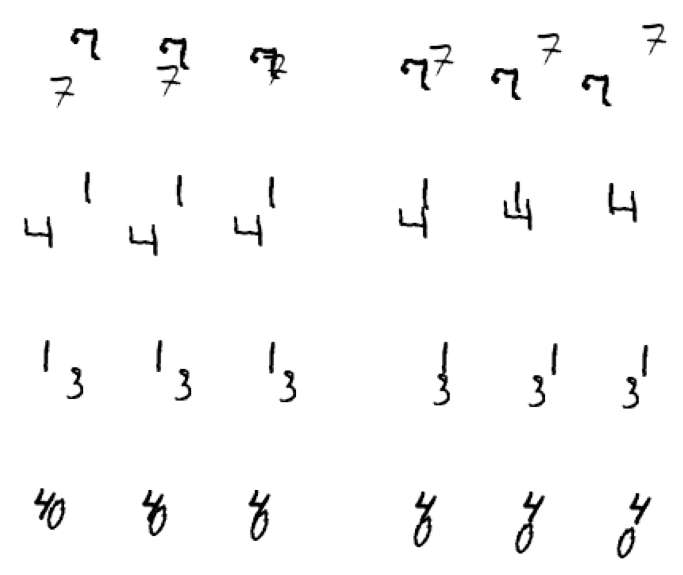 7 7 7 7 7 7 7 7 7 7 7 7
4 1 4 1 4 1 4 1 4 1 4
1 3 1 3 1 3 1 3 3 1 3 1
4 0 4 0 4 0 4 0 4 0 4 0